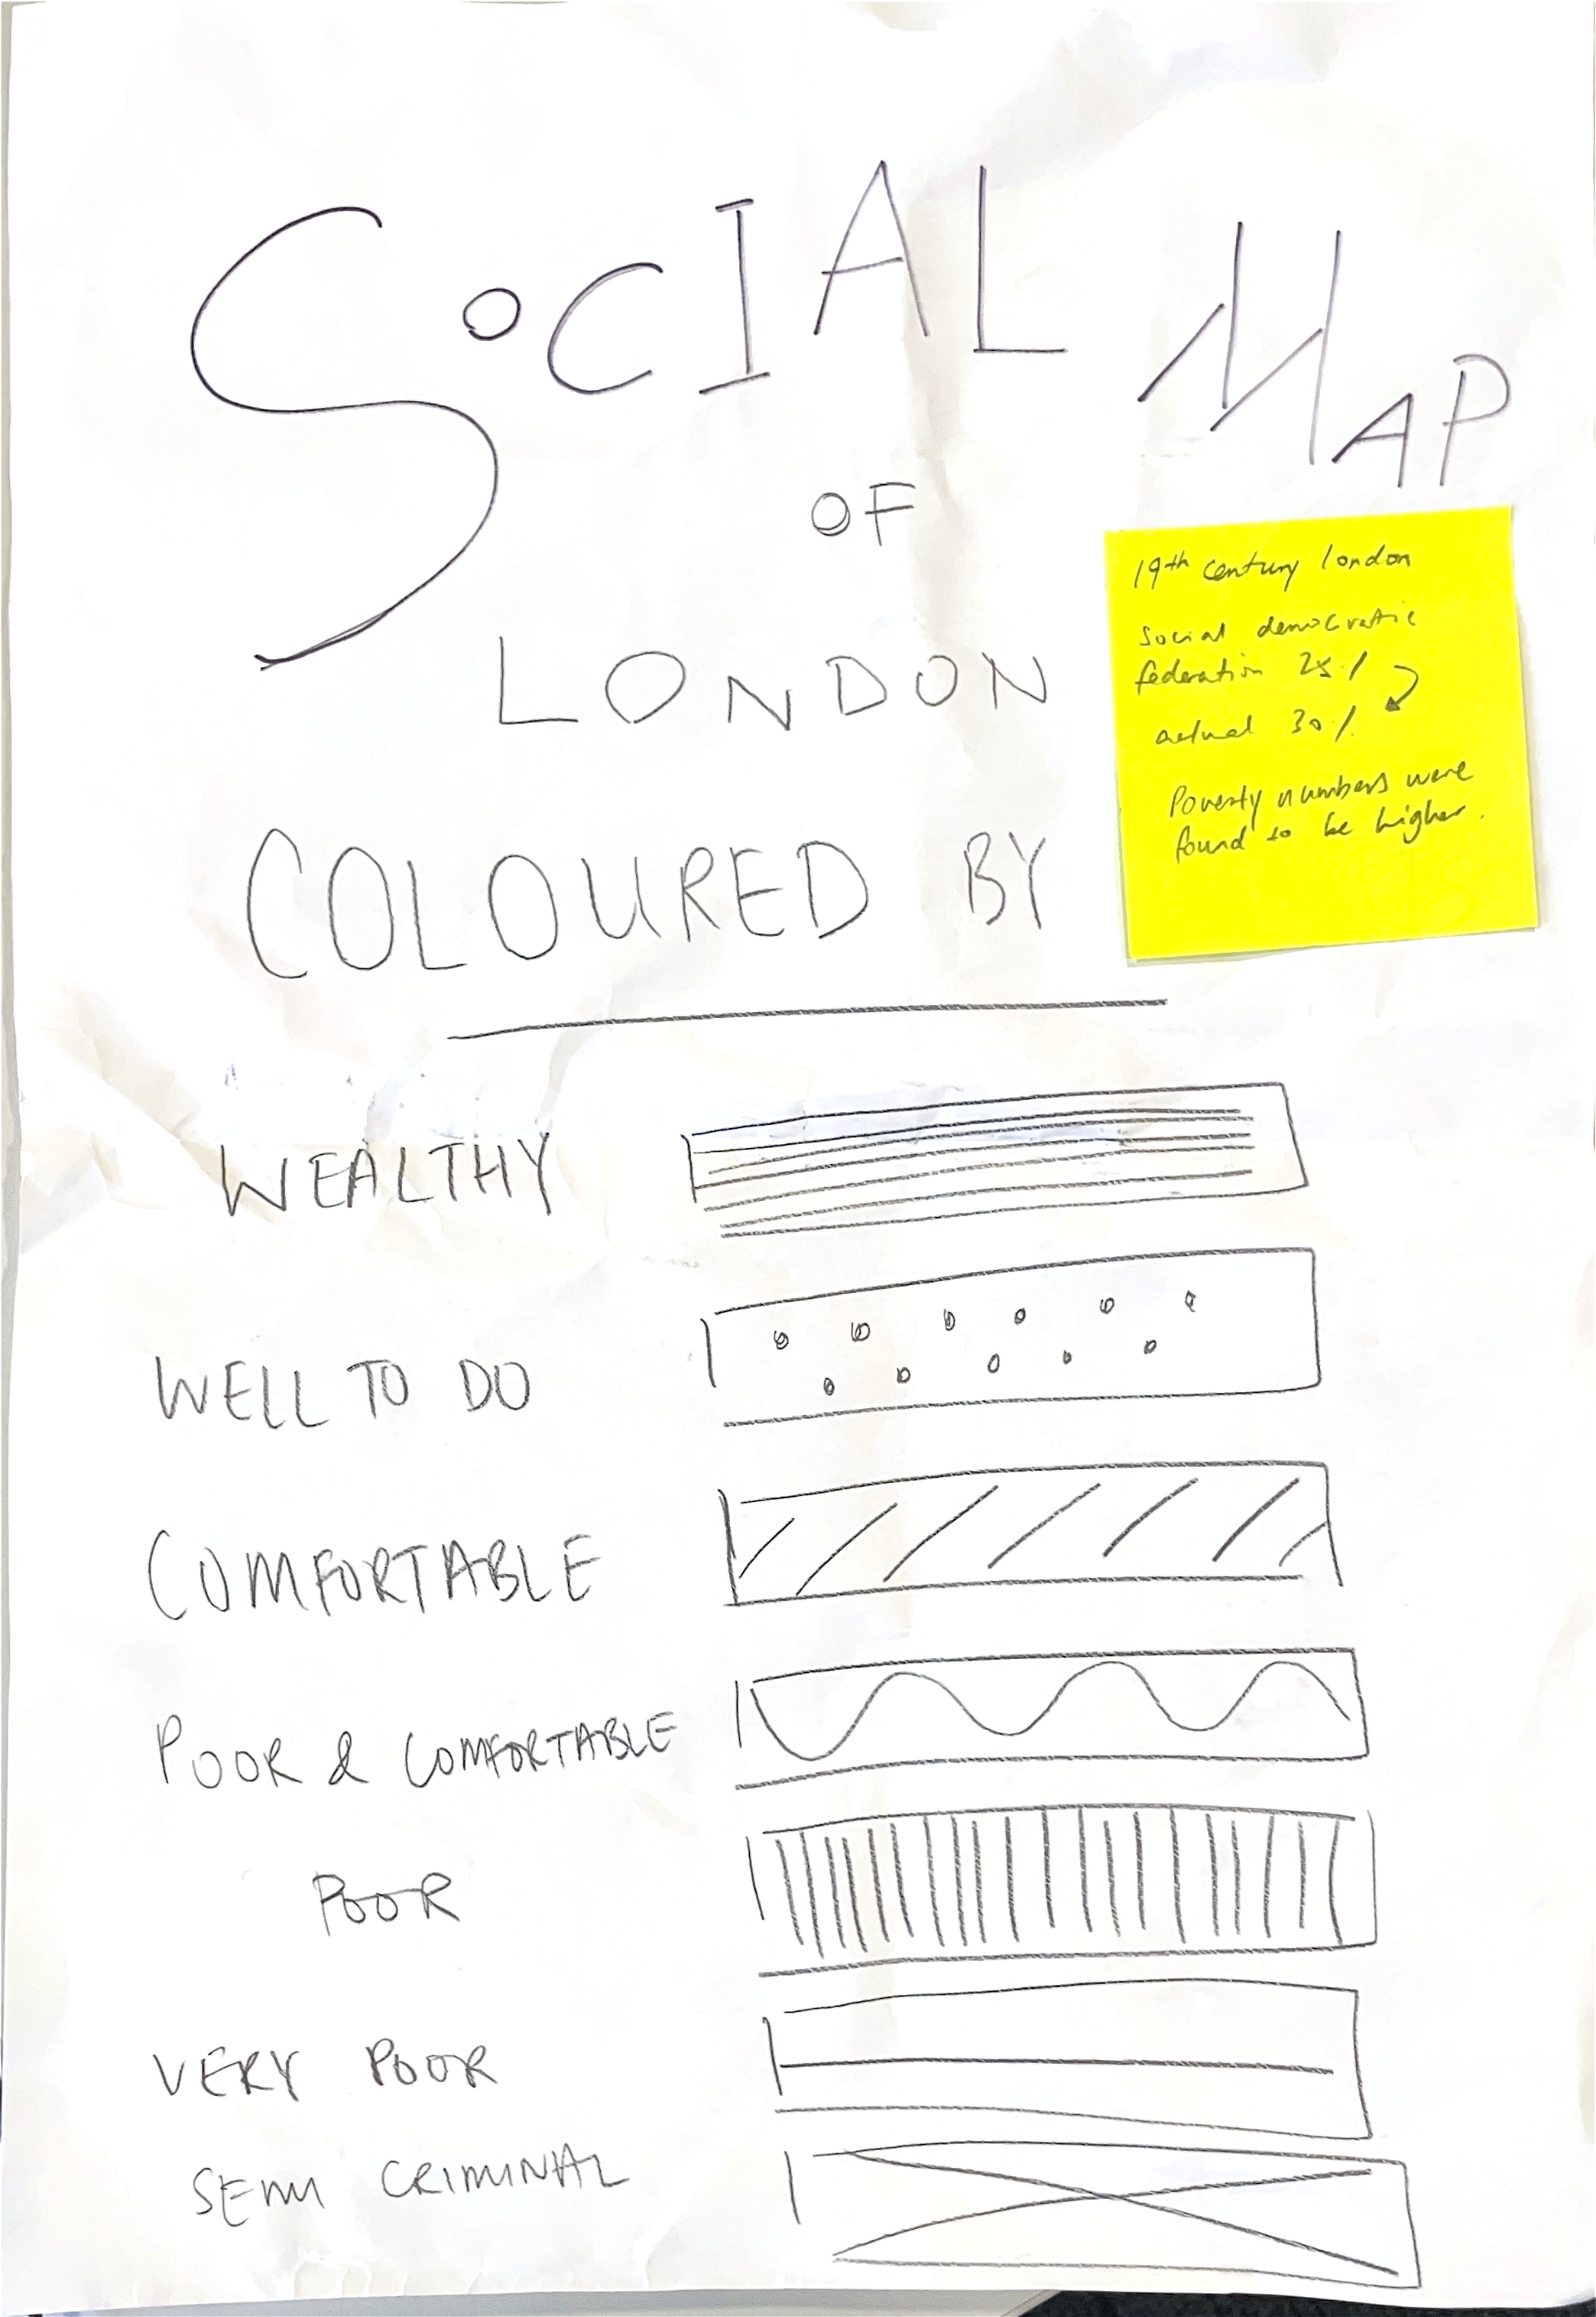 SOCIAL MAP
OF
LONDON
COLOURED BY
19th century london
Social democratic
federation 25%
actual 30%
Poverty numbers were
found to be higher.
WEALTHY
WELL TO DO
COMFORTABLE
POOR & COMFORTABLE
POOR
VERY POOR
SEMI CRIMINAL